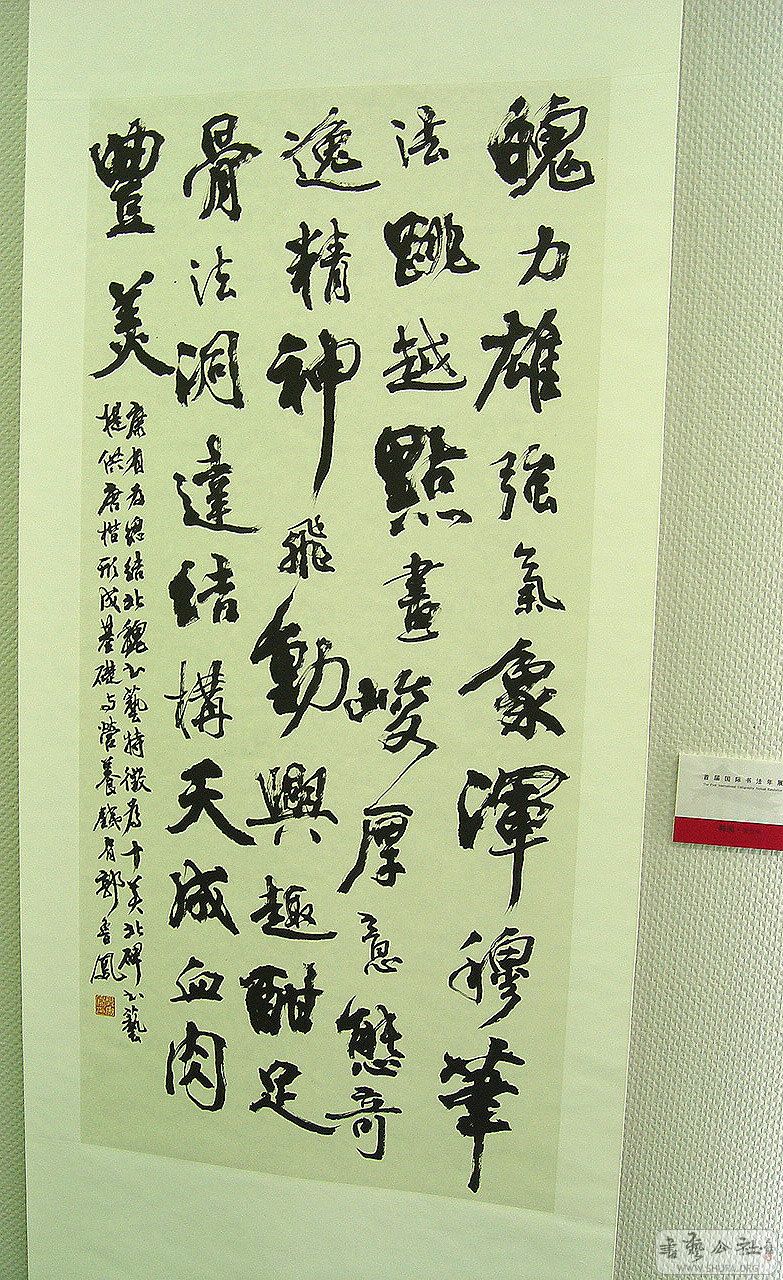 魄力雄強氣象渾穆筆
法跳越點畫峻厚意態奇
逸精神飛動興趣酣足
骨法洞達結構天成血肉
豐美
康有为總結北魏书藝特徵为十美北碑书藝
提供唐楷形成基礎与營養 郭魯鳳
首届国际书法年展
The First International Calligraphy Annual Exhibition
韩国
書藝公社
WWW.SHUFA.ORG